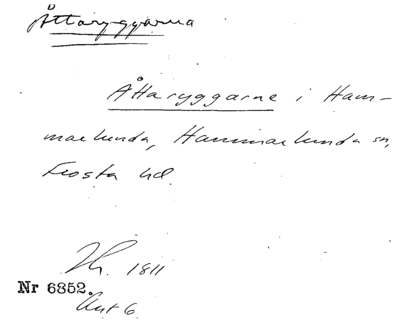 Åttaryggarna
Åttaryggarne i Ham-
marlunda, Hammarlunda sn,
Frosta hd.
Th. 1811
Nr 6852.
Akt 6